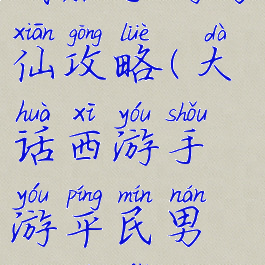 xiān gōng lüè dà
仙攻略(大
huà xī yóu shǒu
话西游手
yóu píng mín nán
游平民男